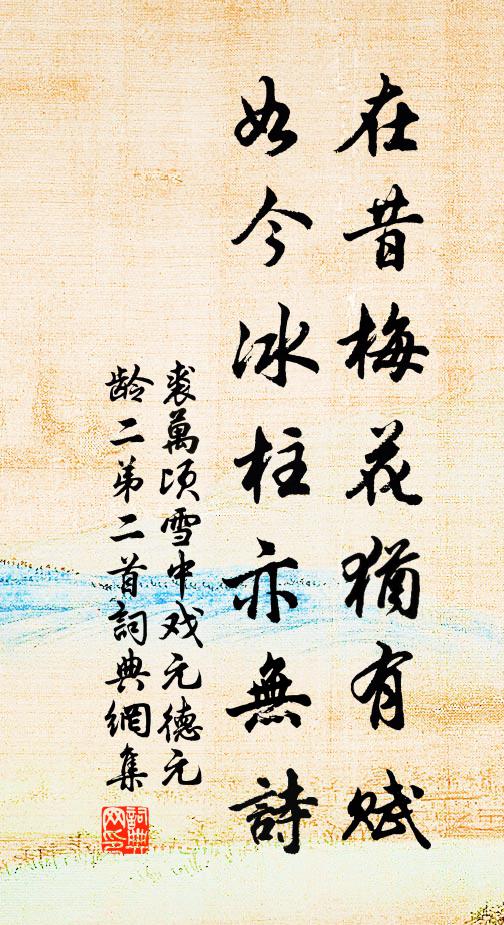 在昔梅花猶有賦
如今冰柱亦無詩
裘萬頃雪中戏元德元
龄二弟二首詞典網集
詞典
网印